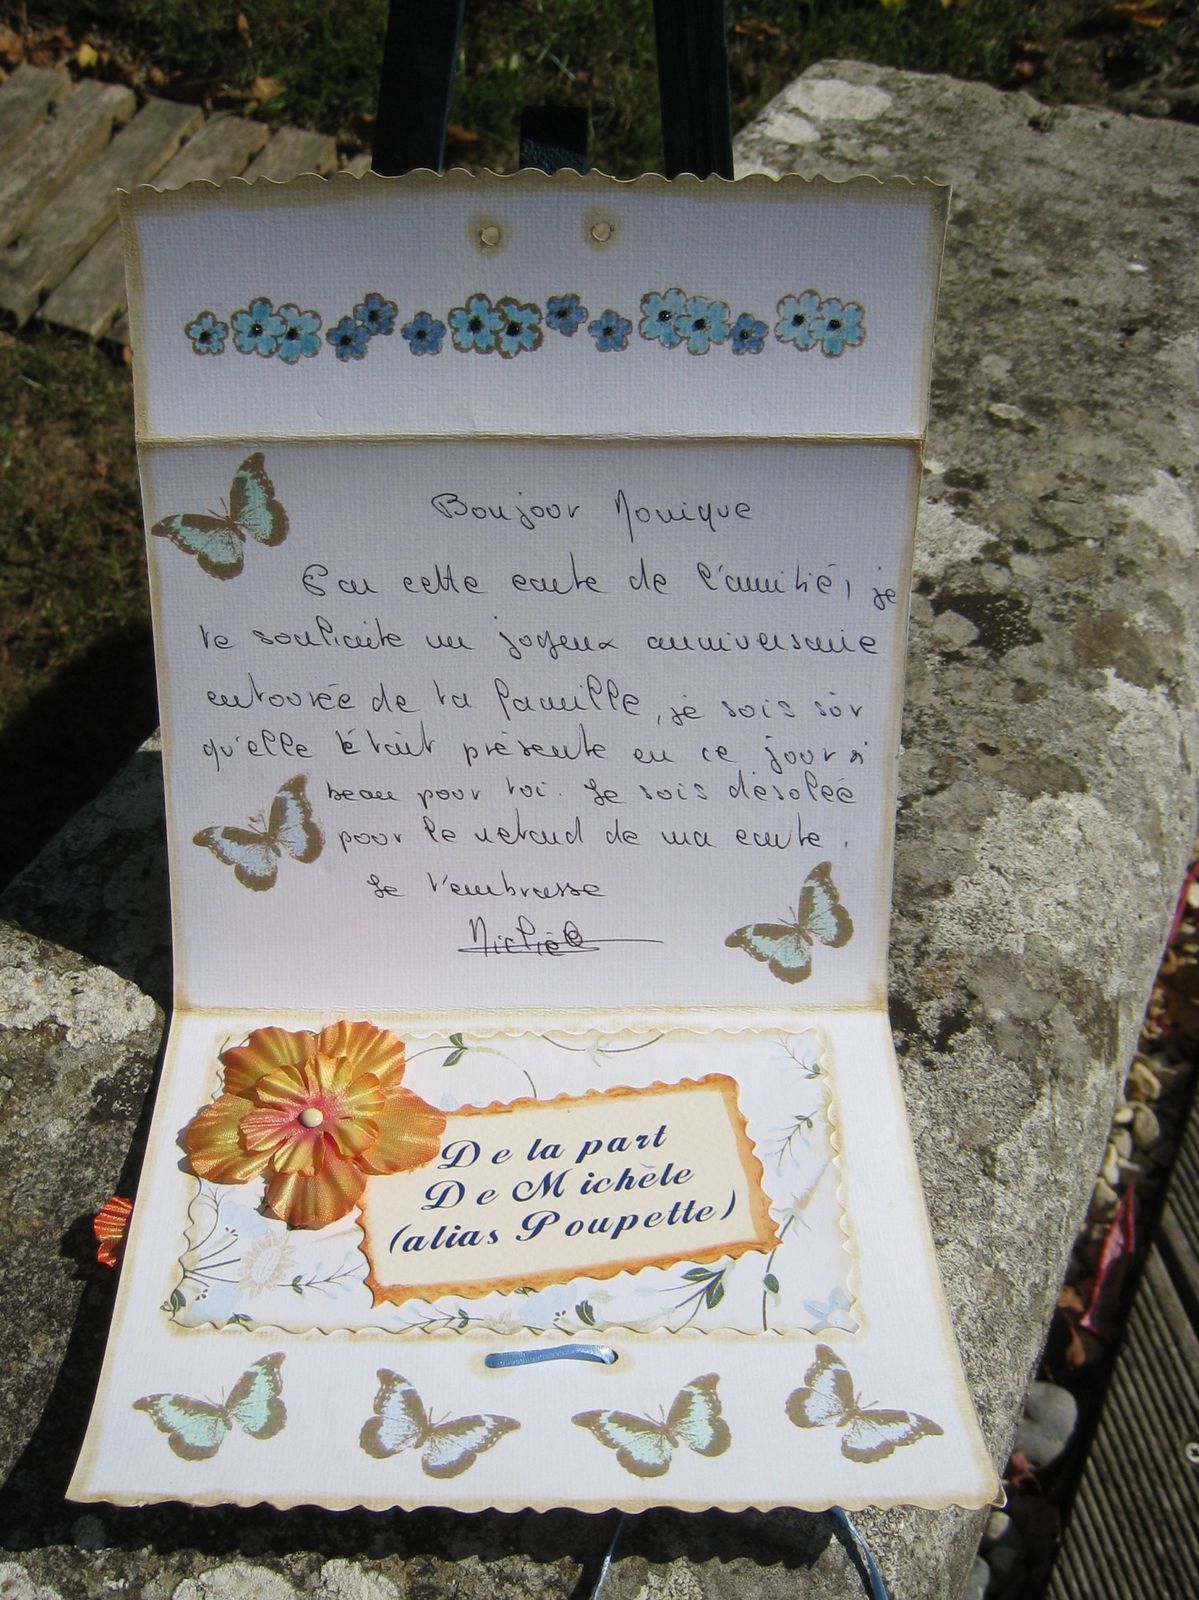 Bonjour Monique
Par cette carte de l'amitié, je
te souhaite un joyeux anniversaire
entourée de ta famille, je suis sûr
qu'elle était présente en ce jour si
beau pour toi. Je suis désolée
pour le retard de ma carte.
Je t'embrasse
Michèle
De la part
De Michèle
(alias Poupette)